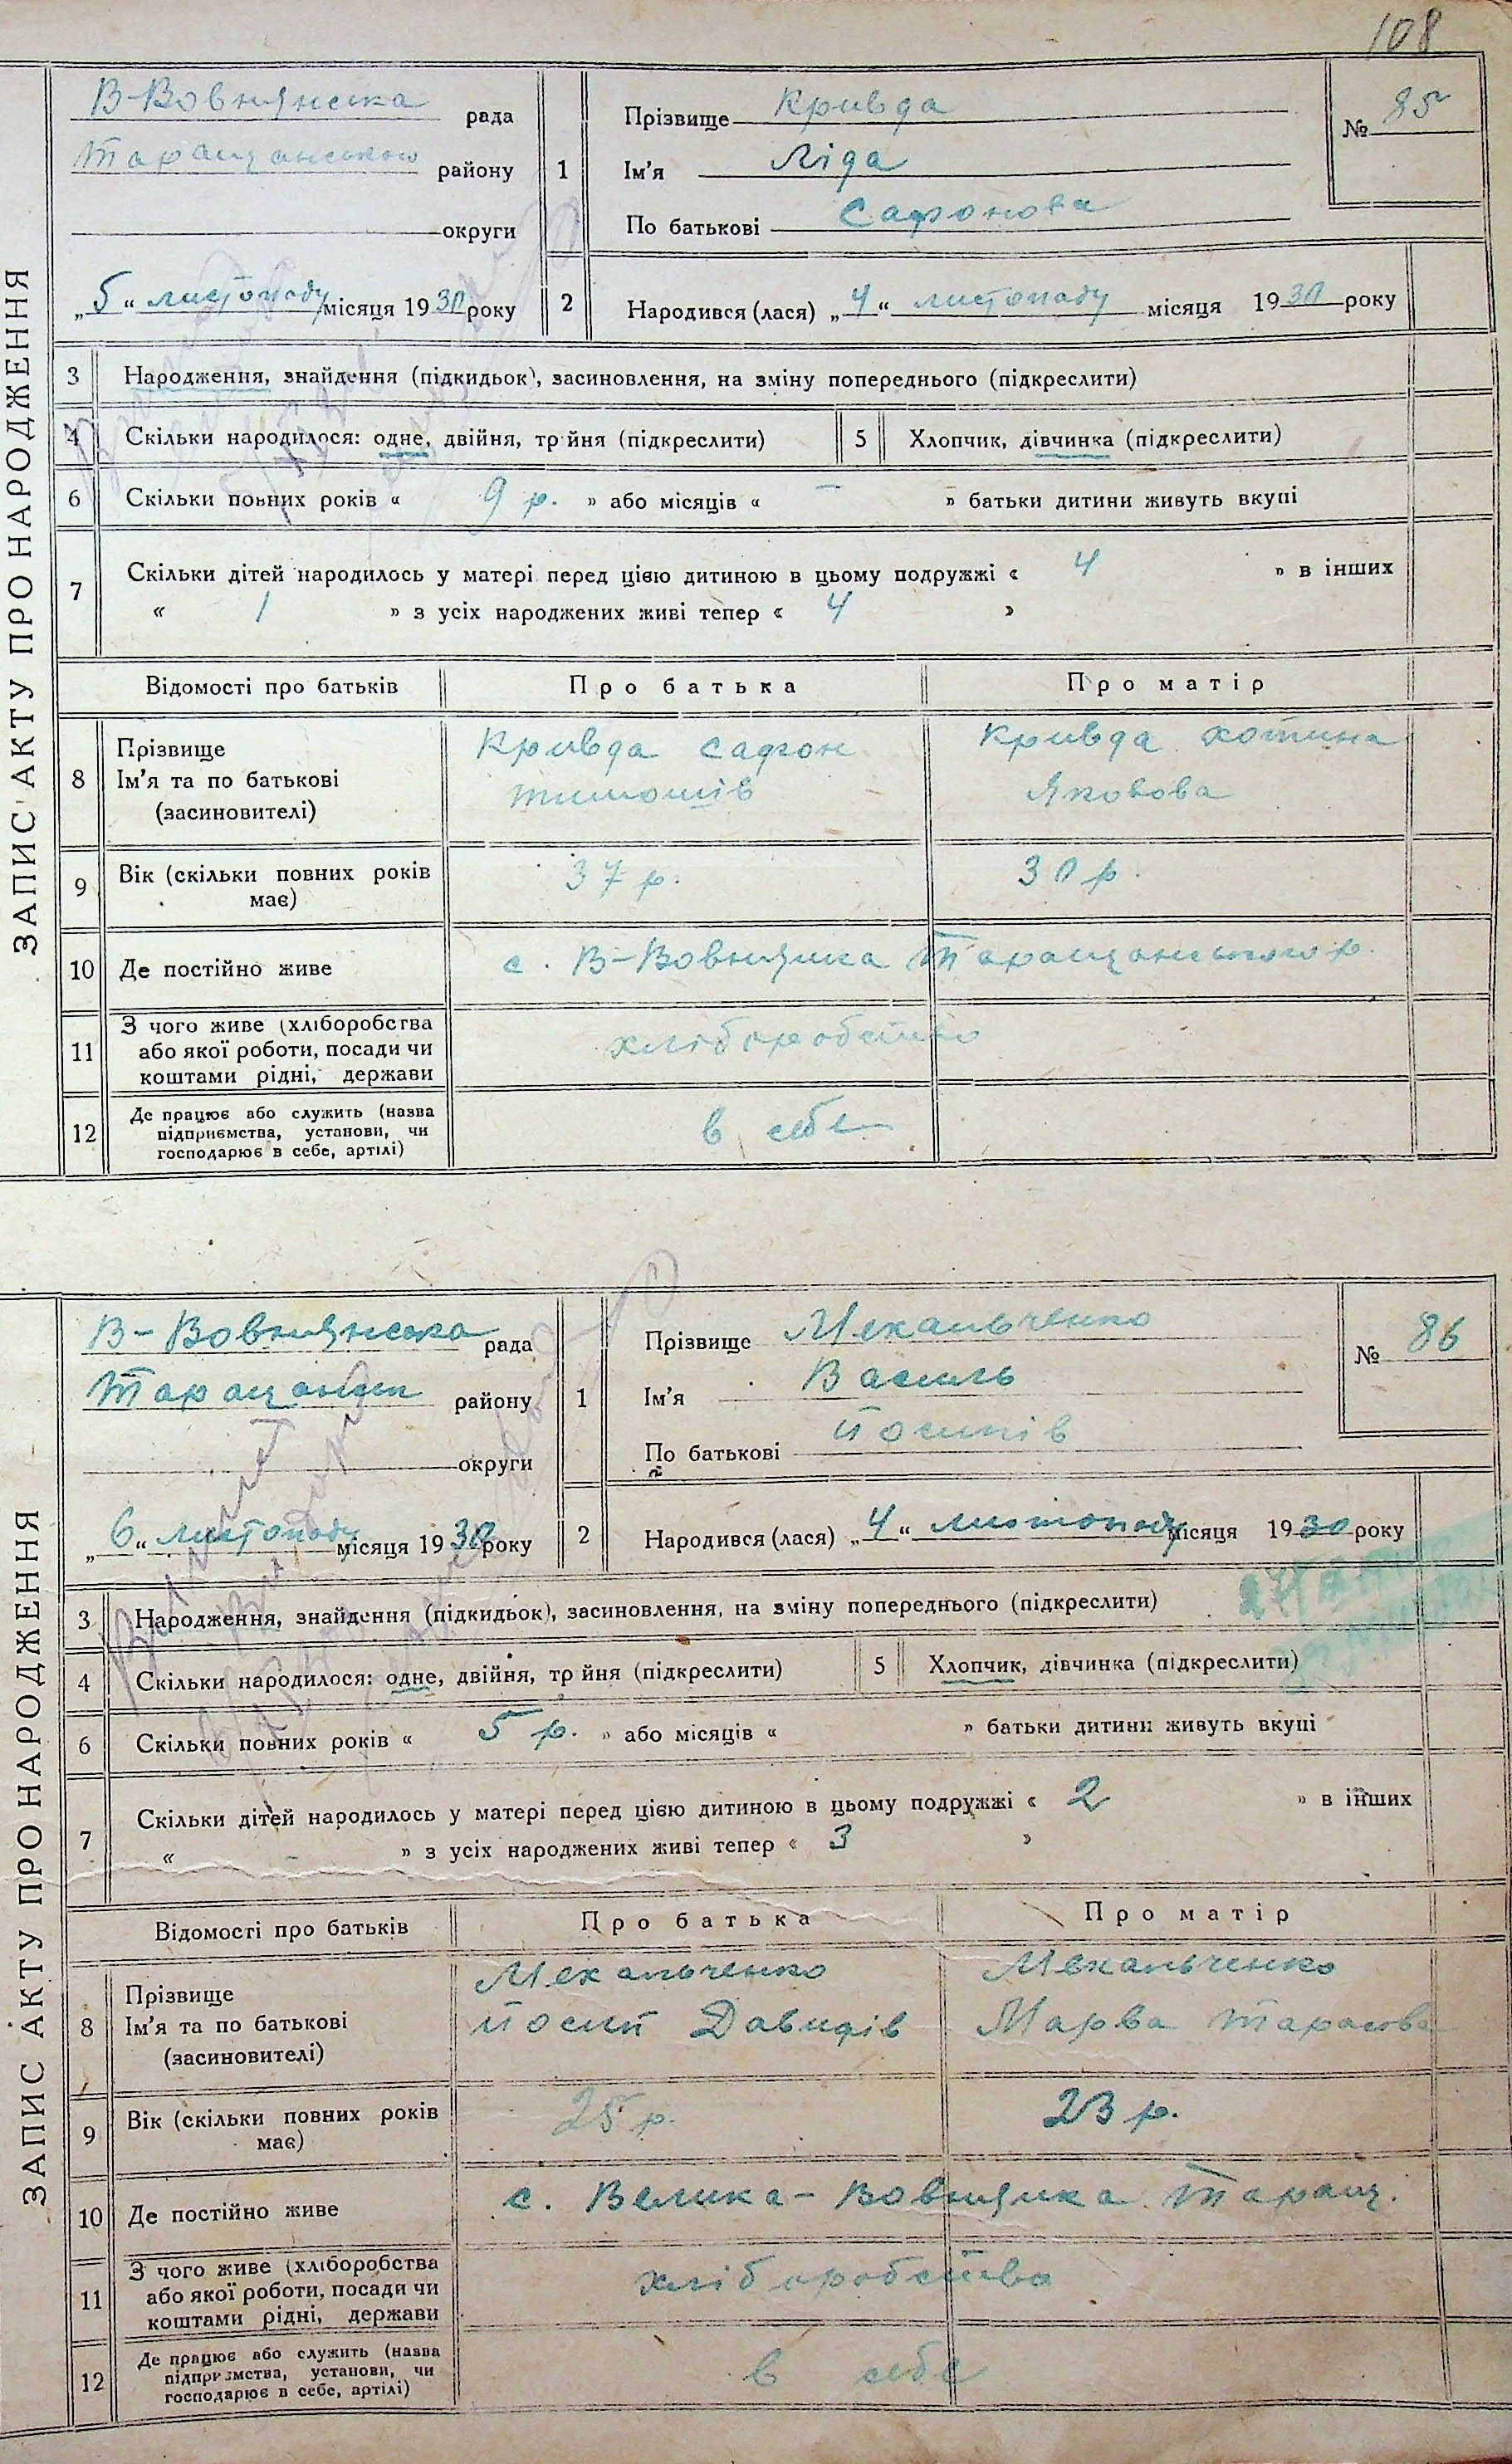 108
ЗАПИС АКТУ ПРО НАРОДЖЕННЯ
В-Вовнянська рада
Таращанського району
округи
„5“ листопаду місяця 1930 року
1
Прізвище Кривда
Ім’я Ліда
По батькові Сафонова
№ 85
2
Народився (лася) „4“ листопаду місяця 1930 року
3 Народження, знайдення (підкидьок), засиновлення, на зміну попереднього (підкреслити)
4 Скільки народилося: одне, двійня, трійня (підкреслити) 5 Хлопчик, дівчинка (підкреслити)
6 Скільки повних років « 9 р. » або місяців « – » батьки дитини живуть вкупі
7 Скільки дітей народилось у матері перед цією дитиною в цьому подружжі « 4 » в інших
« 1 » з усіх народжених живі тепер « 4 »
Відомості про батьків Про батька Про матір
8 Прізвище Ім’я та по батькові (засиновителі)
Кривда Сафон Тимошів
Кривда Хотина Яковова
9 Вік (скільки повних років має) 37 р. 30 р.
10 Де постійно живе с. В-Вовнянка Таращанського р.
11 З чого живе (хліборобства або якої роботи, посади чи коштами рідні, держави хліборобство
12 Де працює або служить (назва підприємства, установи, чи господарює в себе, артілі) в себе
ЗАПИС АКТУ ПРО НАРОДЖЕННЯ
В-Вовнянська рада
Таращанськ району
округи
„6“ листопаду місяця 1930 року
1
Прізвище Мехальченко
Ім’я Василь
По батькові Йосипів
№ 86
2
Народився (лася) „4“ листопаду місяця 1930 року
3 Народження, знайдення (підкидьок), засиновлення, на зміну попереднього (підкреслити)
4 Скільки народилося: одне, двійня, трійня (підкреслити) 5 Хлопчик, дівчинка (підкреслити)
6 Скільки повних років « 5 р. » або місяців « » батьки дитини живуть вкупі
7 Скільки дітей народилось у матері перед цією дитиною в цьому подружжі « 2 » в інших
« – » з усіх народжених живі тепер « 3 »
Відомості про батьків Про батька Про матір
8 Прізвище Ім’я та по батькові (засиновителі)
Мехальченко Йосип Давидів
Мехальченко Марва Тарасова
9 Вік (скільки повних років має) 25 р. 23 р.
10 Де постійно живе с. Велика-Вовнянка Таращ.
11 З чого живе (хліборобства або якої роботи, посади чи коштами рідні, держави хліборобства
12 Де працює або служить (назва підприємства, установи, чи господарює в себе, артілі) в себе